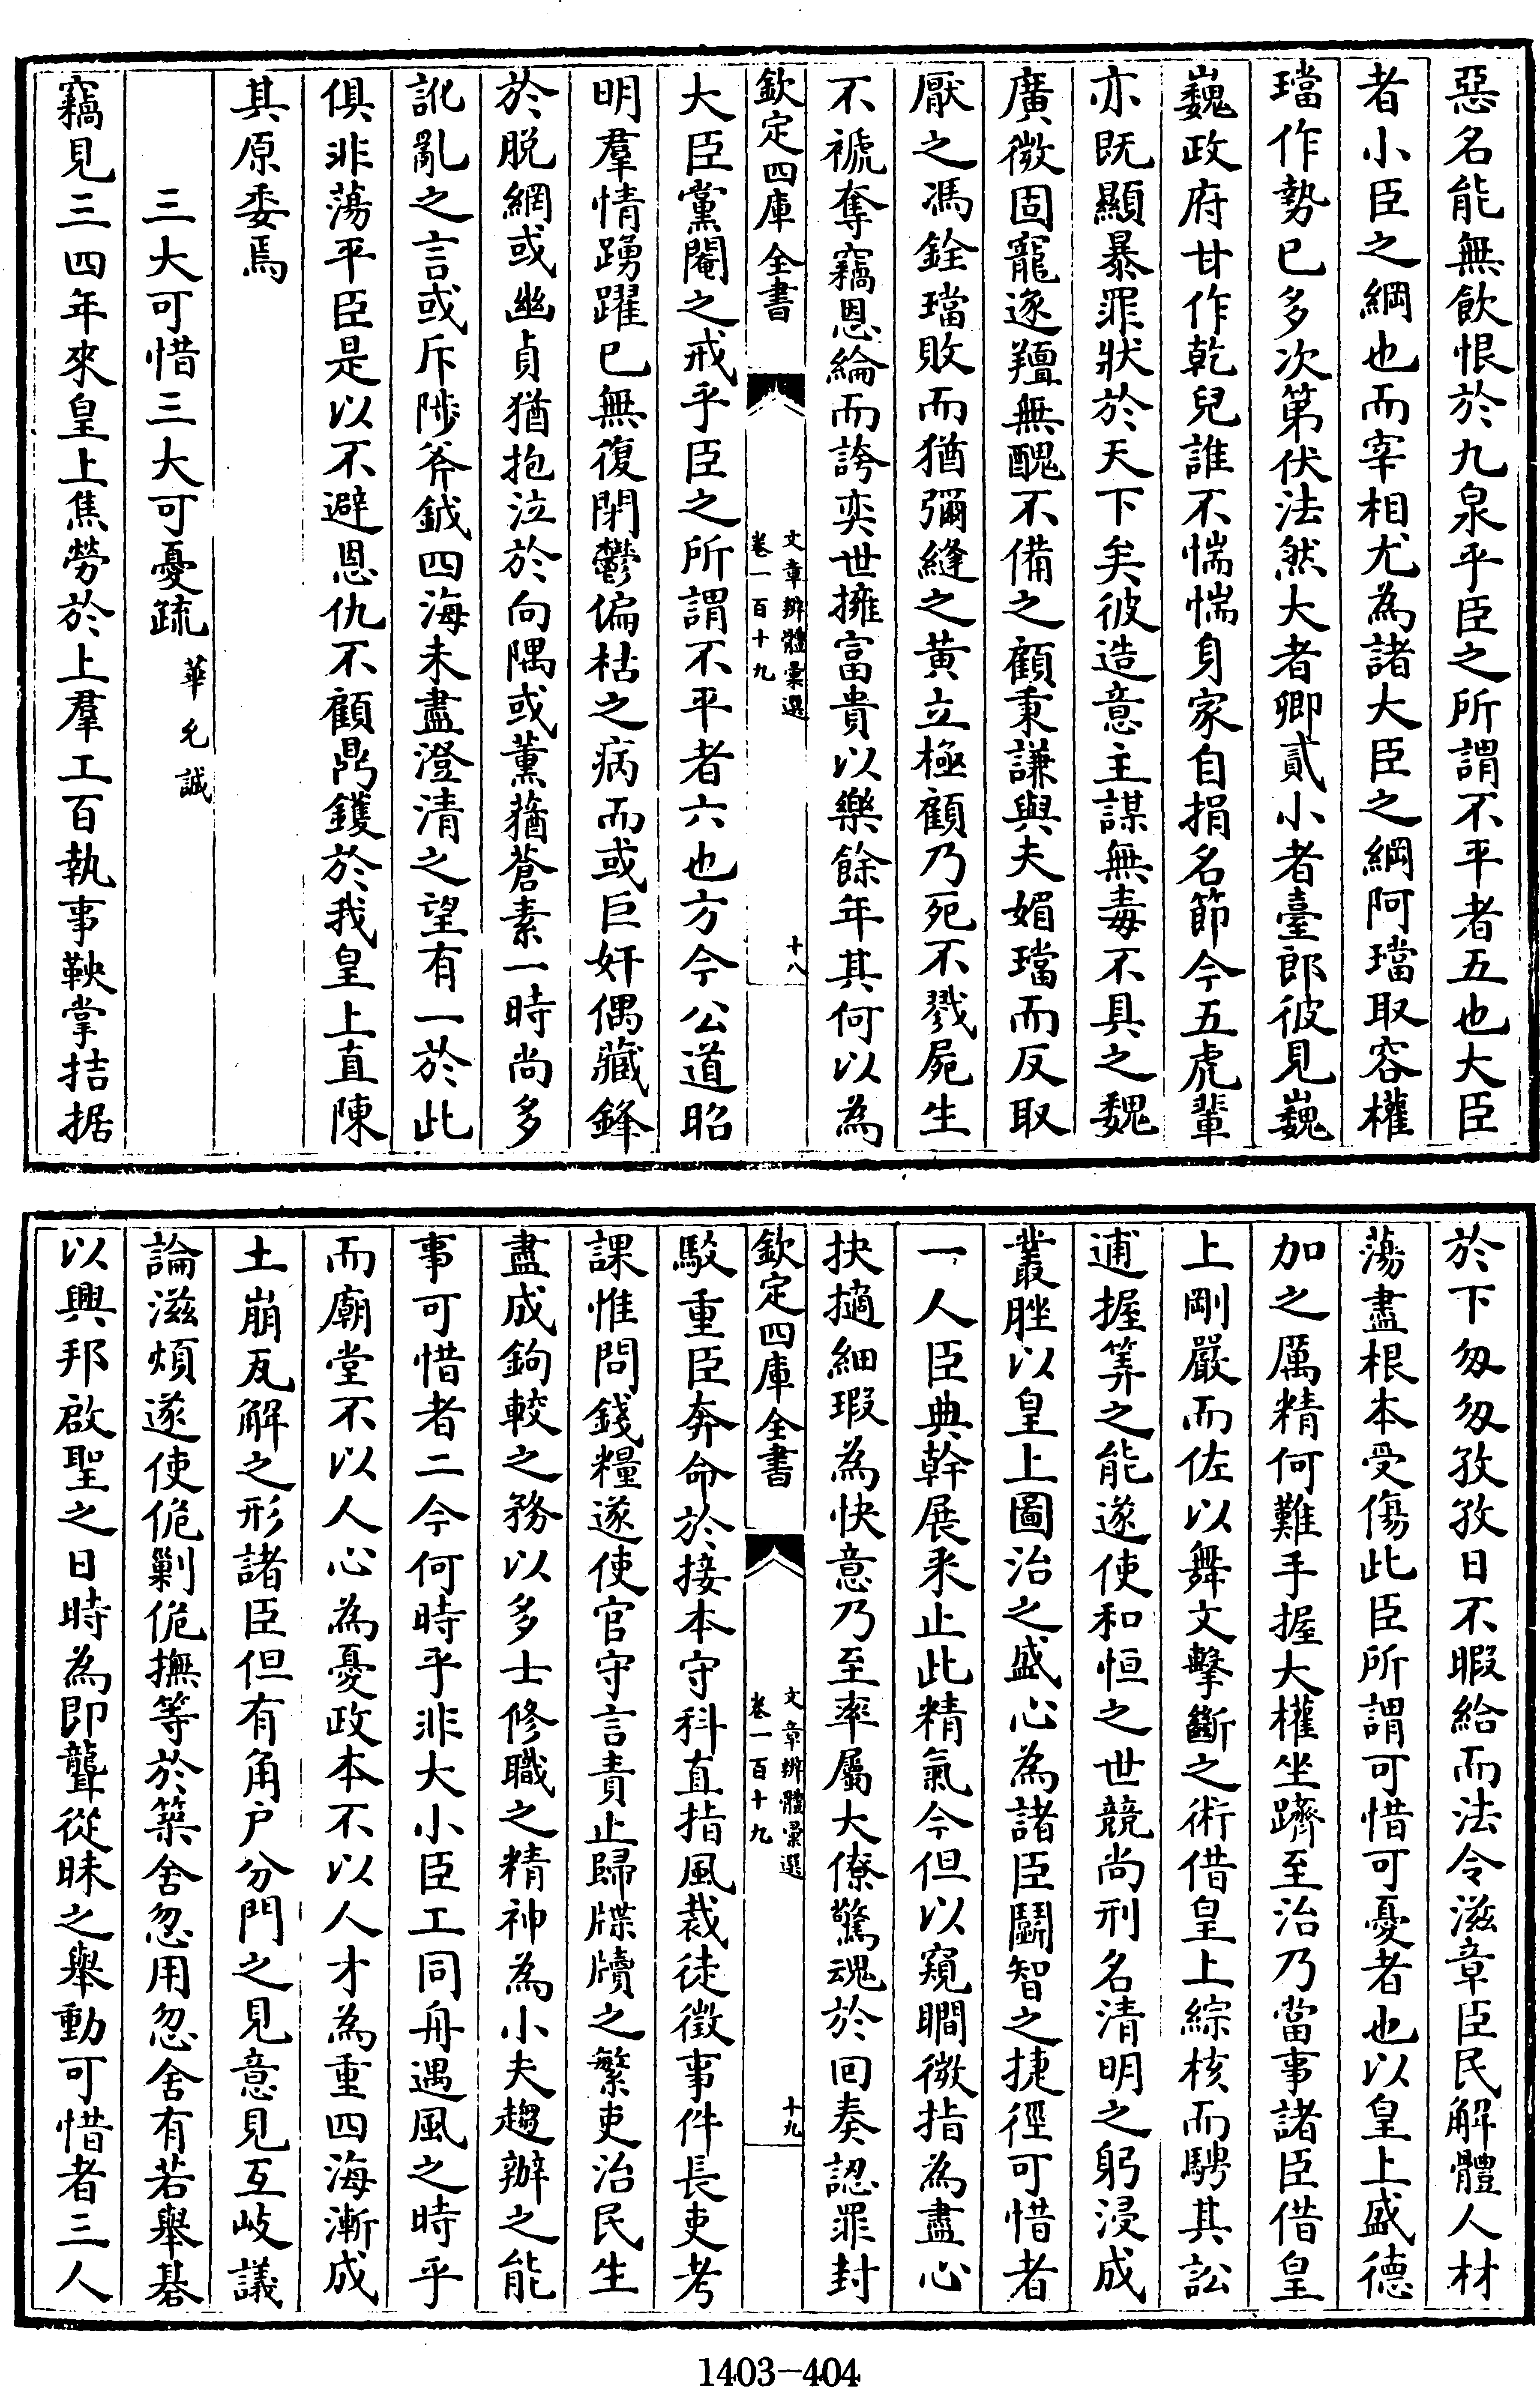 惡名能無飲恨於九泉乎臣之所謂不平者五也大臣
者小臣之綱也而宰相尤為諸大臣之綱阿璫取容權
璫作勢已多次第伏法然大者卿貳小者臺郎彼見巍
巍政府甘作乾兒誰不惴惴身家自捐名節今五虎輩
亦既顯暴罪狀於天下矣彼造意主謀無毒不具之魏
廣微固寵逐羶無醜不備之顧秉謙與夫媚璫而反取
厭之馮銓璫敗而猶彌縫之黃立極顧乃死不戮屍生
不褫奪竊恩綸而誇奕世擁富貴以樂餘年其何以為
欽定四庫全書
文章辨體彙選
卷一百十九
十八
大臣黨閹之戒乎臣之所謂不平者六也方今公道昭
明羣情踴躍已無復閉鬱偏枯之病而或巨奸偶藏鋒
於脫網或幽貞猶抱泣於向隅或薰蕕蒼素一時尚多
訛亂之言或斥陟斧鉞四海未盡澄清之望有一於此
俱非蕩平臣是以不避恩仇不顧鼎鑊於我皇上直陳
其原委焉
三大可惜三大可憂疏 華允誠
竊見三四年來皇上焦勞於上羣工百執事鞅掌拮据
於下匆匆孜孜日不暇給而法令滋章臣民解體人材
蕩盡根本受傷此臣所謂可惜可憂者也以皇上盛德
加之厲精何難手握大權坐躋至治乃當事諸臣借皇
上剛嚴而佐以舞文擊斷之術借皇上綜核而騁其訟
逋握筭之能遂使和恒之世競尚刑名清明之躬浸成
叢脞以皇上圖治之盛心為諸臣鬭智之捷徑可惜者
一人臣典幹展采止此精氣今但以窺瞷微指為盡心
抉擿細瑕為快意乃至率屬大僚驚魂於回奏認罪封
欽定四庫全書
文章辨體彙選
卷一百十九
十九
駁重臣奔命於接本守科直指風裁徒徵事件長吏考
課惟問錢糧遂使官守言責止歸牒牘之繁吏治民生
盡成鉤較之務以多士修職之精神為小夫趨辦之能
事可惜者二今何時乎非大小臣工同舟遇風之時乎
而廟堂不以人心為憂政本不以人才為重四海漸成
土崩瓦解之形諸臣但有角户分門之見意見互岐議
論滋煩遂使佹剿佹撫等於築舍忽用忽舍有若舉棊
以興邦啟聖之日時為即聾從昧之舉動可惜者三人
1403-404